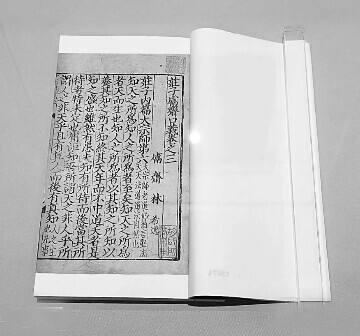 莊子鬳齋口義卷之三
鬳齋林 希逸
莊子内篇大宗師第六
知天之所為知人之所為者至矣知天之所為
者天而生也知人之所為者以其知之所知以
養其知之所不知終其天年而不中道夭者是
知之盛也雖然有患夫知有所待而後當其所
待者特未定也庸詎知吾所謂天之非人乎所
謂人之非天乎且有真人而後有真知